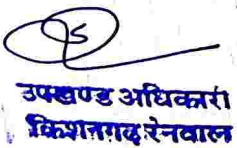 उपखण्ड अधिकारी
किशनगढ़-रेनवाल